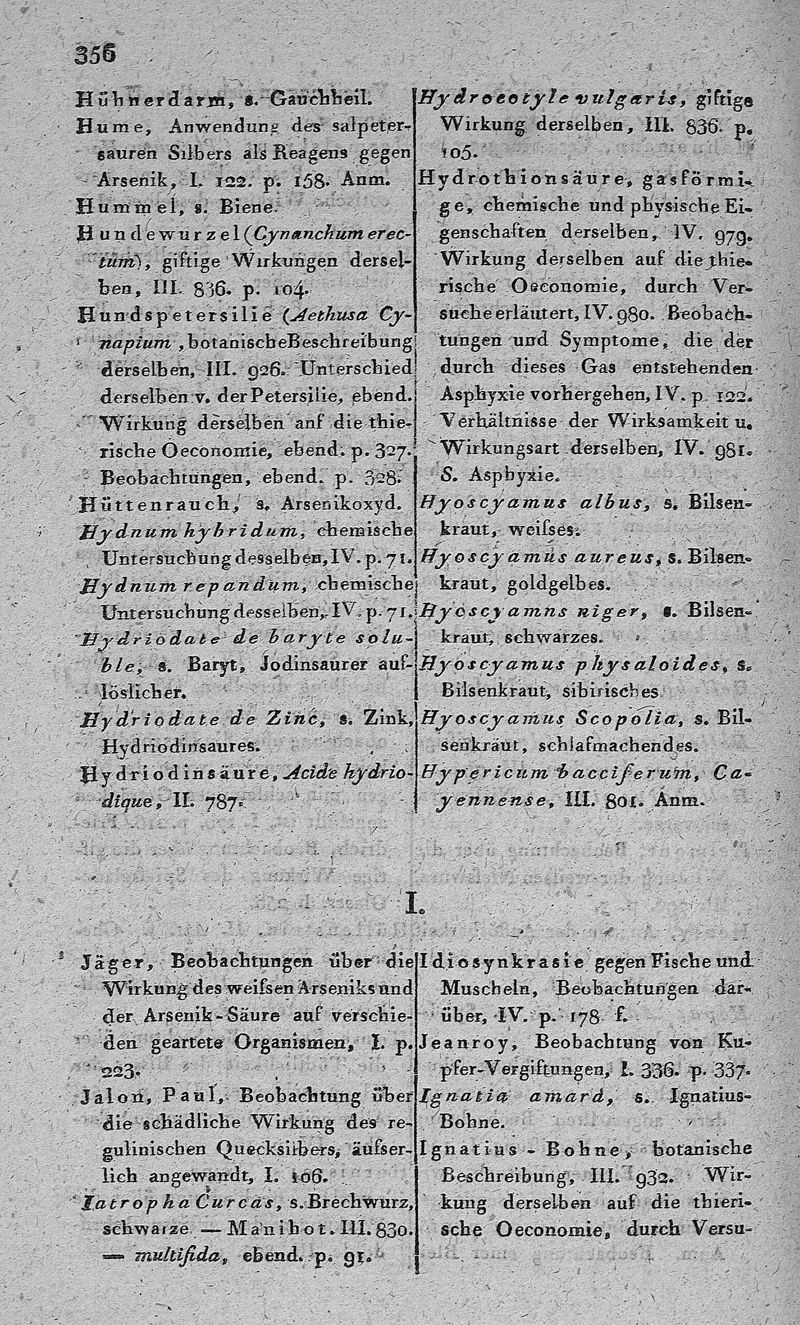 356
Hühnerdarm, s. Gauchheil.
Hume, Anwendung des salpeter-
sauren Silbers als Reagens gegen
Arsenik, I. 122. p. 158. Anm.
Hummel, s. Biene.
Hundewurzel (Cynanchum erec-
tum), giftige Wirkungen dersel-
ben, III. 836. p. 104.
Hundspetersilie (Aethusa Cy-
napium, botanische Beschreibung
derselben, III. 926. Unterschied
derselben v. der Petersilie, ebend.
Wirkung derselben auf die thie-
rische Oeconomie, ebend. p. 327.
Beobachtungen, ebend. p. 328.
Hüttenrauch, s. Arsenikoxyd.
Hydnum hybridum, chemische
Untersuchung desselben, IV. p. 71.
Hydnum repandum, chemische
Untersuchung desselben, IV. p. 71.
Hydriodate de baryte solu-
ble, s. Baryt, Jodinsaurer auf-
löslicher.
Hydriodate de Zinc, s. Zink,
Hydriodinsaures.
Hydriodinsäure, Acide hydrio-
dique, II. 787.
Hydrocotyle vulgaris, giftige
Wirkung derselben, III. 836. p.
105.
Hydrothionsäure, gasförmi-
ge, chemische und physische Ei-
genschaften derselben, IV. 979.
Wirkung derselben auf die thie-
rische Oeconomie, durch Ver-
suche erläutert, IV. 980. Beobach-
tungen und Symptome, die der
durch dieses Gas entstehenden
Asphyxie vorhergehen, IV. p. 122.
Verhältnisse der Wirksamkeit u.
Wirkungsart derselben, IV. 981.
S. Asphyxie.
Hyoscyamus albus, s. Bilsen-
kraut, weifses.
Hyoscyamus aureus, s. Bilsen-
kraut, goldgelbes.
Hyoscyamns niger, s. Bilsen-
kraut, schwarzes.
Hyoscyamus physaloides, s.
Bilsenkraut, sibirisches.
Hyoscyamus Scopolia, s. Bil-
senkraut, schlafmachendes.
Hypericum bacciferum, Ca-
yennense, III. 801. Anm.
I.
Jäger, Beobachtungen über die
Wirkung des weifsen Arseniks und
der Arsenik-Säure auf verschie-
den geartete Organismen, I. p.
223.
Jalon, Paul, Beobachtung über
die schädliche Wirkung des re-
gulinischen Quecksilbers, äufser-
lich angewandt, I. 106.
Iatropha Curcas, s. Brechwurz,
schwarze. — Manihot. III. 830.
— multifida, ebend. p. 91.
Idiosynkrasie gegen Fische und
Muscheln, Beobachtungen dar-
über, IV. p. 178 f.
Jeanroy, Beobachtung von Ku-
pfer-Vergiftungen, I. 336. p. 337.
Ignatia amara, s. Ignatius-
Bohne.
Ignatius-Bohne, botanische
Beschreibung, III. 932. Wir-
kung derselben auf die thieri-
sche Oeconomie, durch Versu-